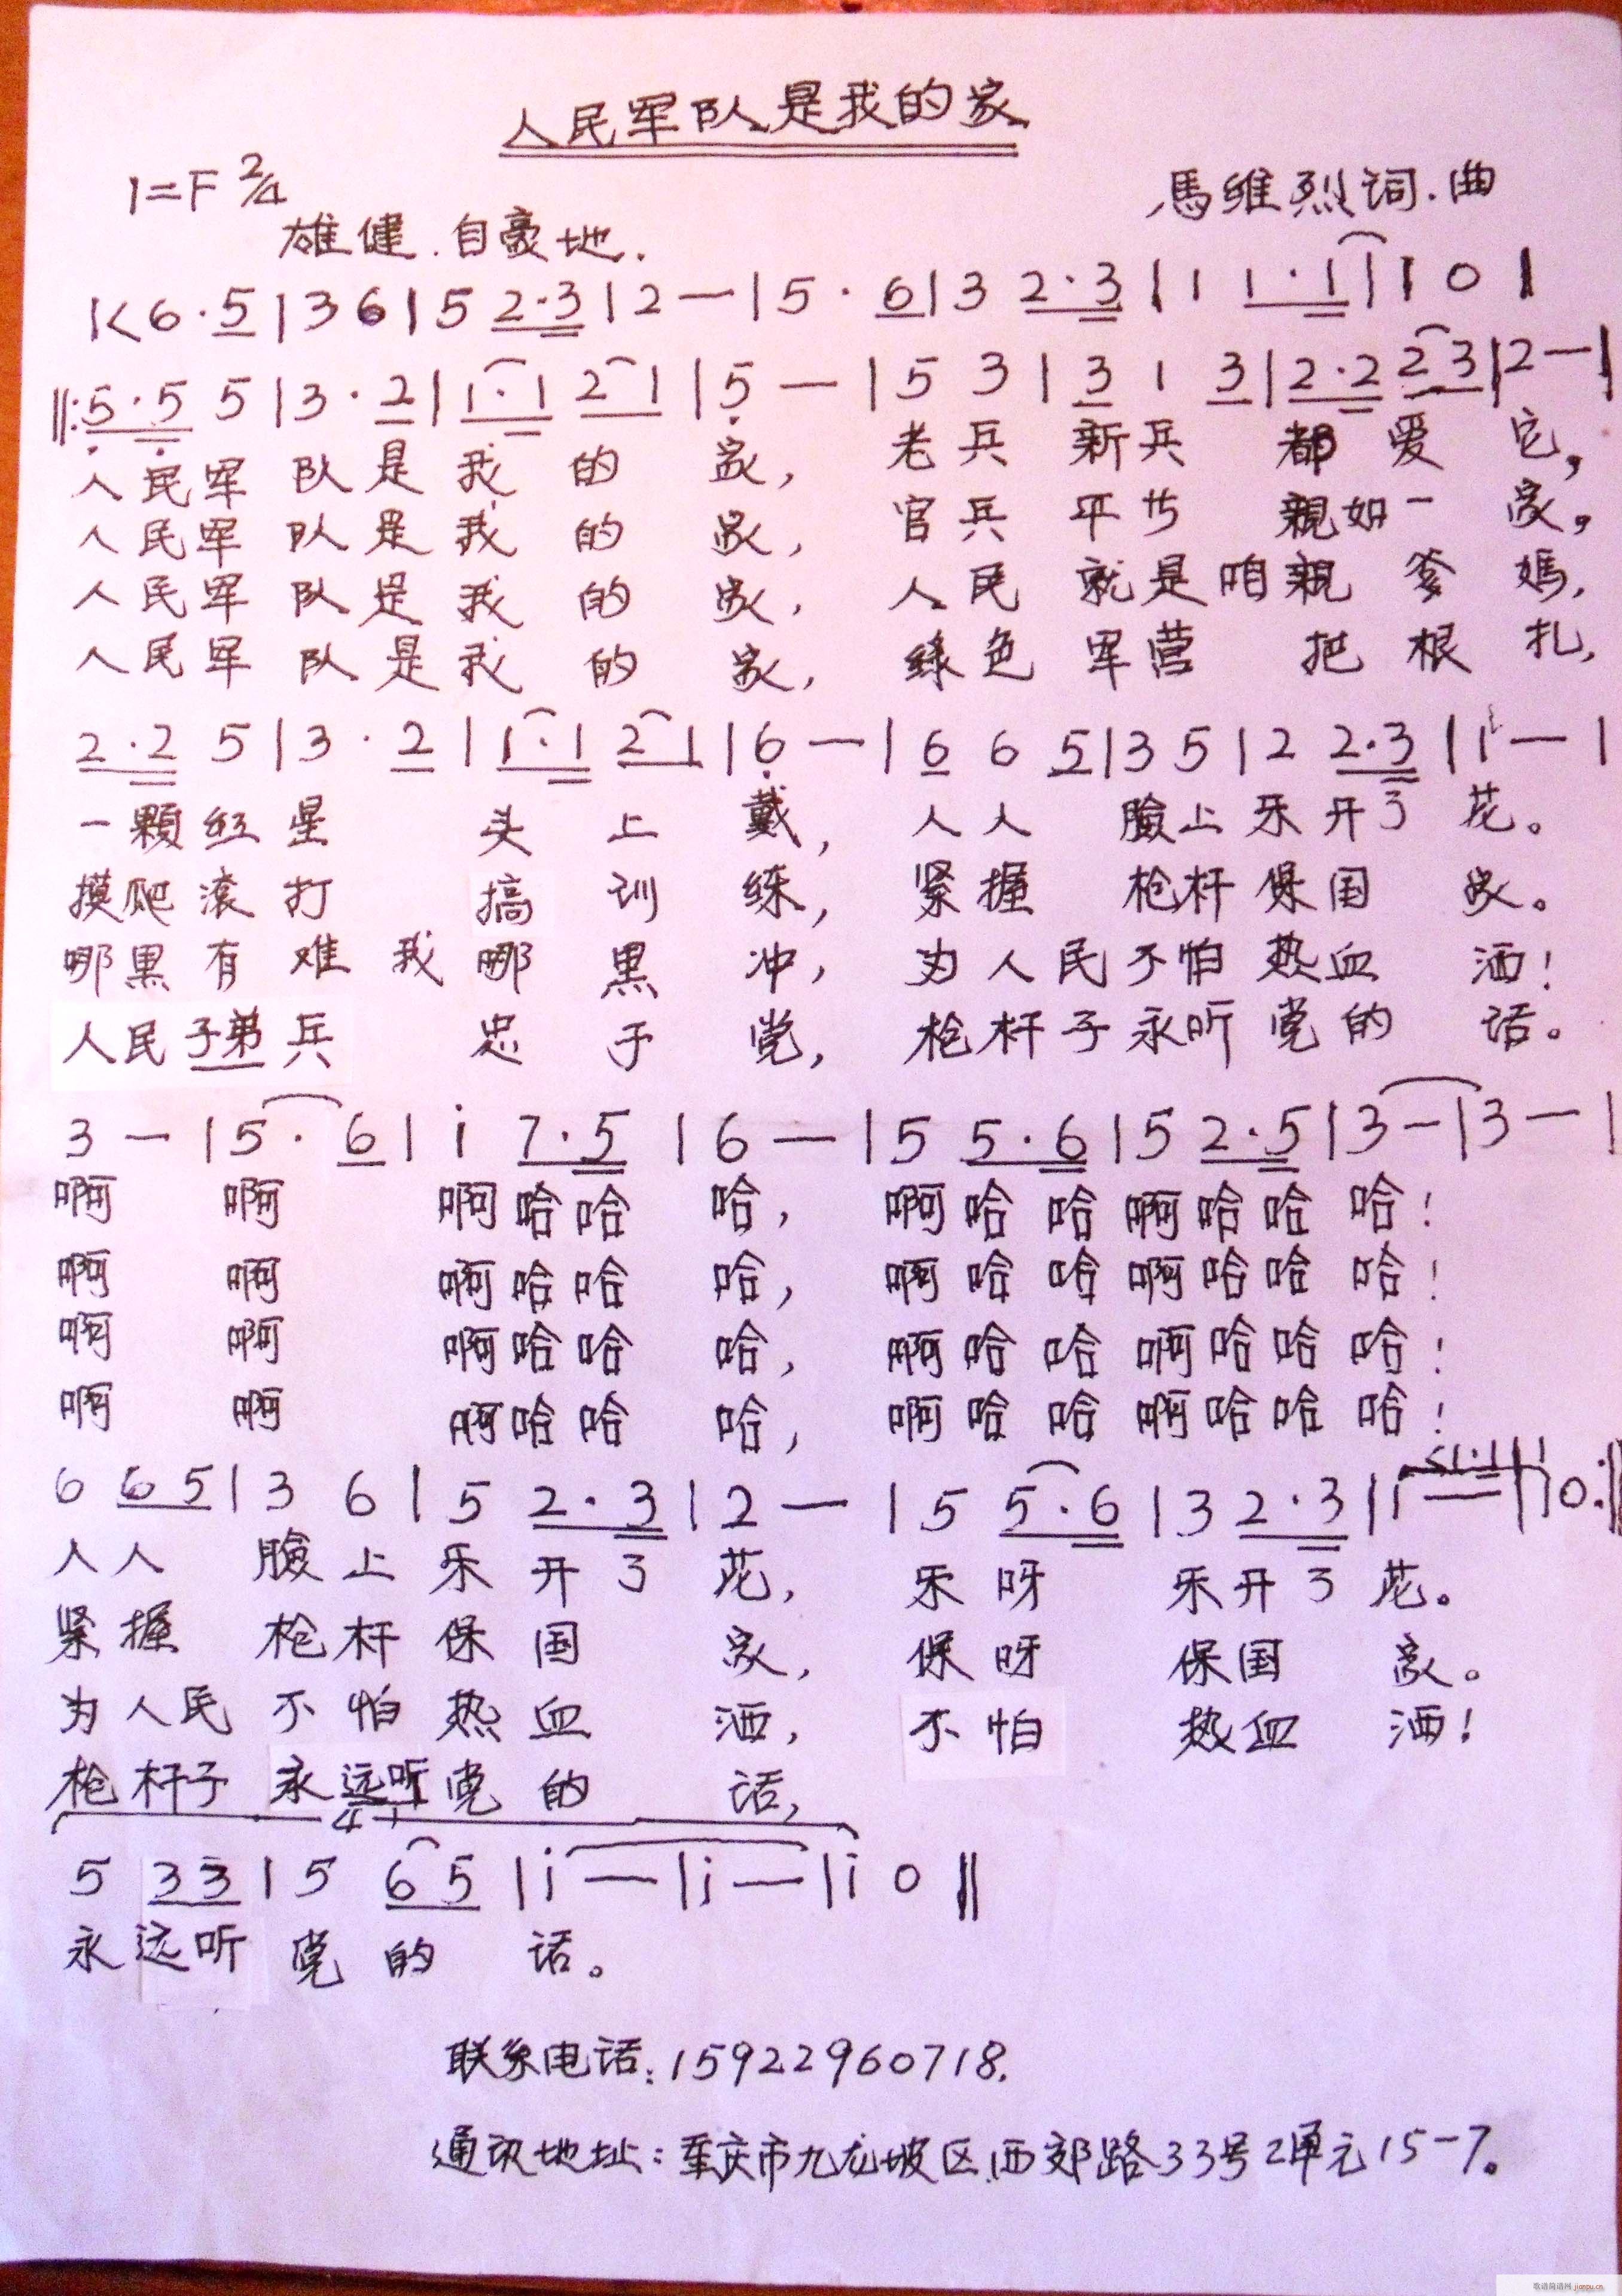 人民军队是我的家
1=F 2/4
馬维烈词.曲
雄健.自豪地.
|< 6·5 | 3 6 | 5 2·3 | 2 — | 5 · 6 | 3 2·3 | 1 1·1 | 1 0 |
‖: 5·5 5 | 3·2 | 1·1 2 1 | 5 — | 5 3 | 3 1 3 | 2·2 2 3 | 2 — |
人民军 队是我的家, 老兵新兵都爱它,
人民军 队是我的家, 官兵平等親如一家,
人民军 队是我的家, 人民就是咱親爹媽,
人民军 队是我的家, 绿色军营把根扎,
2·2 5 | 3·2 | 1·1 2 1 | 6 — | 6 6 5 | 3 5 | 2 2·3 | 1 — |
一颗红星头上戴, 人人臉上乐开了花。
摸爬滚打搞训练, 紧握枪杆保国家。
哪里有难我哪里冲, 为人民不怕热血洒!
人民子弟兵忠于党, 枪杆子永听党的话。
3 — | 5 · 6 | i 7·5 | 6 — | 5 5·6 | 5 2·5 | 3 — | 3 — |
啊 啊 啊哈哈哈, 啊哈哈啊哈哈哈!
啊 啊 啊哈哈哈, 啊哈哈啊哈哈哈!
啊 啊 啊哈哈哈, 啊哈哈啊哈哈哈!
啊 啊 啊哈哈哈, 啊哈哈啊哈哈哈!
6 6 5 | 3 6 | 5 2·3 | 2 — | 5 5·6 | 3 2·3 | 1 — | 1 0 :‖
人人臉上乐开了花, 乐呀乐开了花。
紧握枪杆保国家, 保呀保国家。
为人民不怕热血洒, 不怕热血洒!
枪杆子永远听党的话,
5 3 3 | 5 6 5 | i — | i — | i 0 ‖
永远听党的话。
联系电话:15922960718.
通讯地址:重庆市九龙坡区西郊路33号2单元15-7。
歌谱简谱网 jianpu.cn